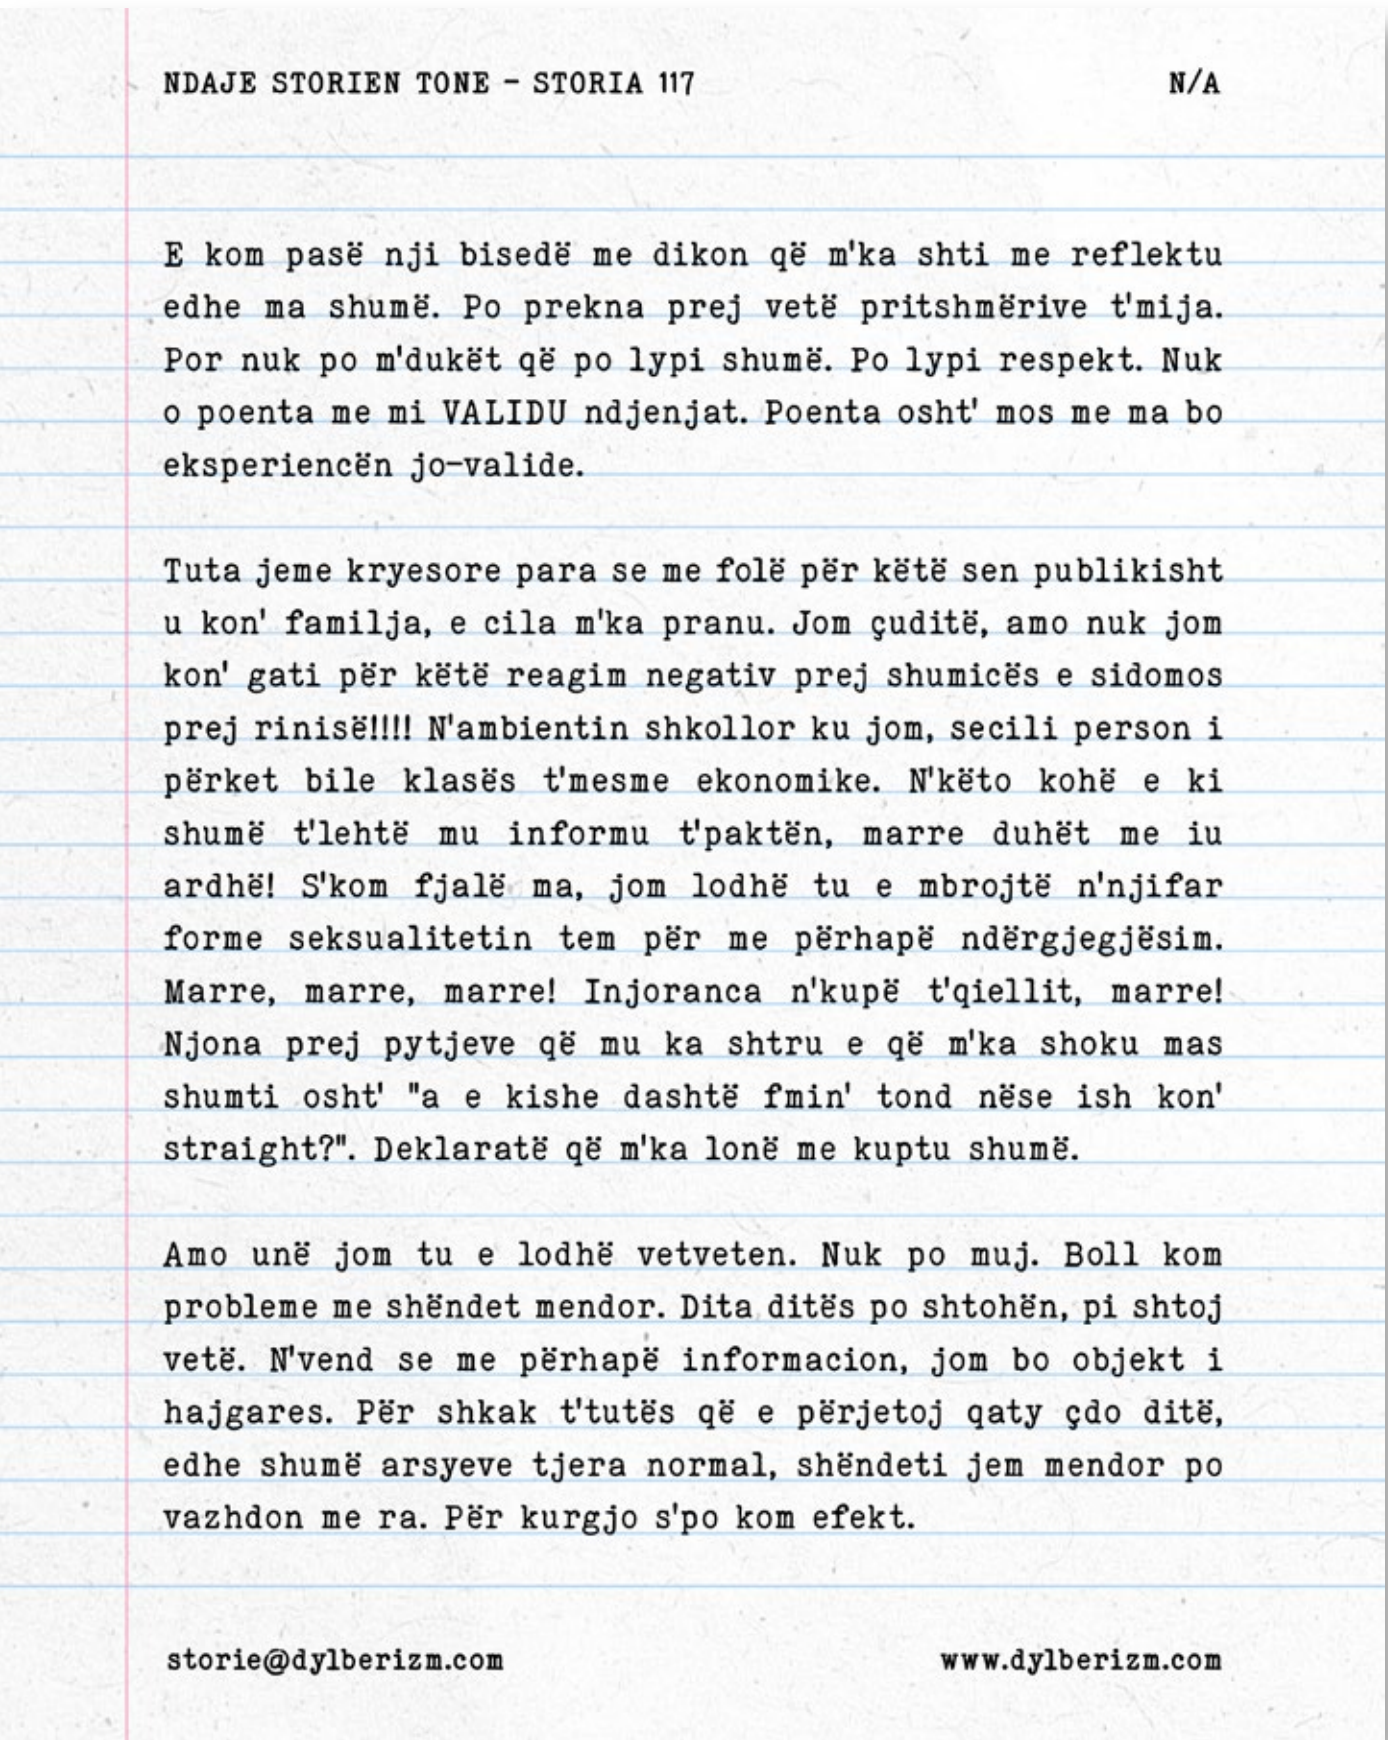 NDAJE STORIEN TONE - STORIA 117
N/A
E kom pasë nji bisedë me dikon që m'ka shti me reflektu
edhe ma shumë. Po prekna prej vetë pritshmërive t'mija.
Por nuk po m'dukët që po lypi shumë. Po lypi respekt. Nuk
o poenta me mi VALIDU ndjenjat. Poenta osht' mos me ma bo
eksperiencën jo-valide.
Tuta jeme kryesore para se me folë për këtë sen publikisht
u kon' familja, e cila m'ka pranu. Jom çuditë, amo nuk jom
kon' gati për këtë reagim negativ prej shumicës e sidomos
prej rinisë!!!! N'ambientin shkollor ku jom, secili person i
përket bile klasës t'mesme ekonomike. N'këto kohë e ki
shumë t'lehtë mu informu t'paktën, marre duhët me iu
ardhë! S'kom fjalë ma, jom lodhë tu e mbrojtë n'njifar
forme seksualitetin tem për me përhapë ndërgjegjësim.
Marre, marre, marre! Injoranca n'kupë t'qiellit, marre!
Njona prej pytjeve që mu ka shtru e që m'ka shoku mas
shumti osht' "a e kishe dashtë fmin' tond nëse ish kon'
straight?". Deklaratë që m'ka lonë me kuptu shumë.
Amo unë jom tu e lodhë vetveten. Nuk po muj. Boll kom
probleme me shëndet mendor. Dita ditës po shtohën, pi shtoj
vetë. N'vend se me përhapë informacion, jom bo objekt i
hajgares. Për shkak t'tutës që e përjetoj qaty çdo ditë,
edhe shumë arsyeve tjera normal, shëndeti jem mendor po
vazhdon me ra. Për kurgjo s'po kom efekt.
storie@dylberizm.com
www.dylberizm.com